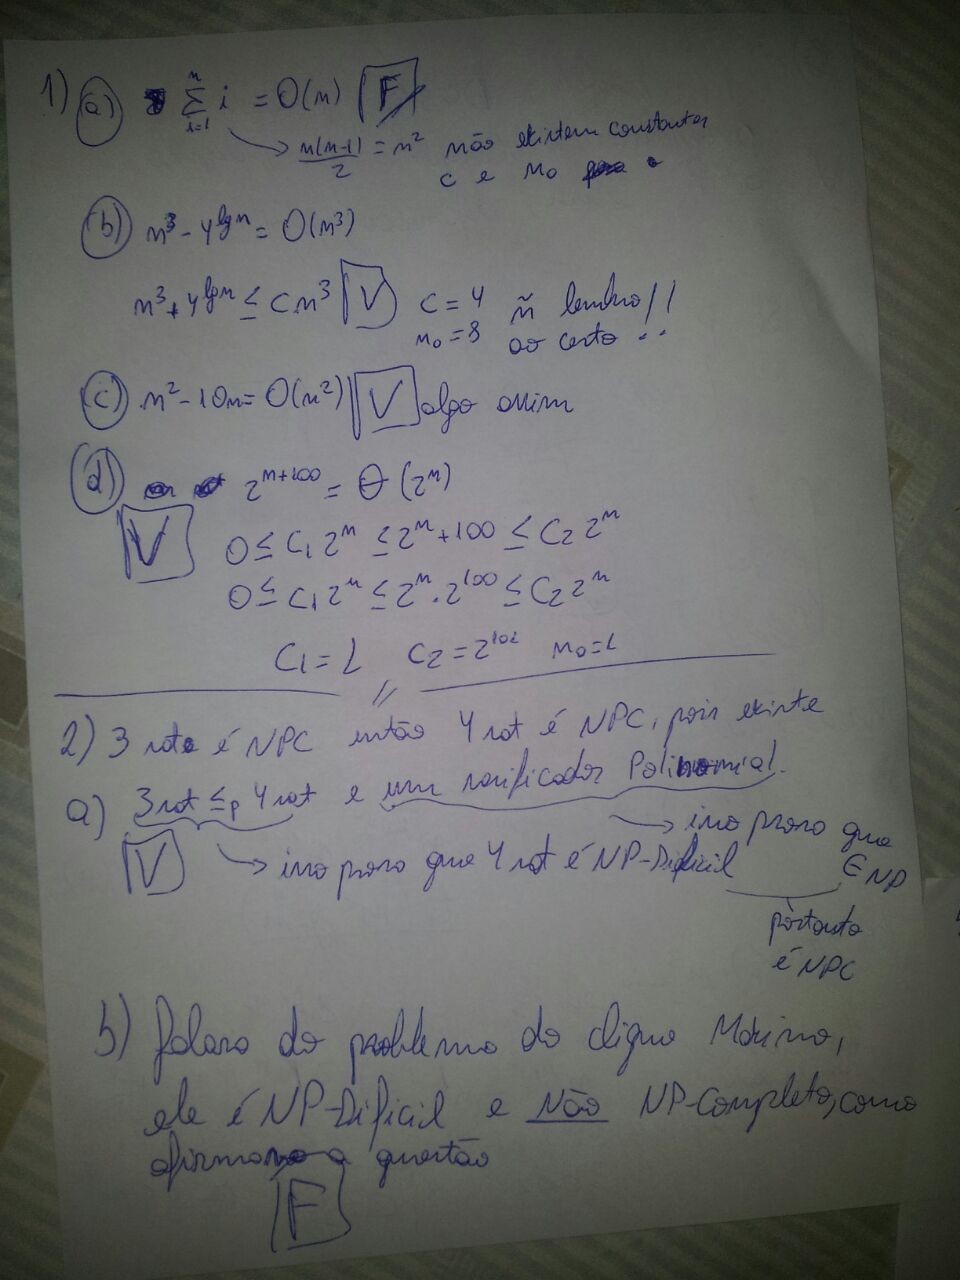 1) (a) n∑i=1 i = O(n) F
n(n-1)/2 = n² não existem constantes
c e n₀
(b) n³ - 4^lgn = O(n³)
n³ + 4^lgn ≤ cn³ V c = 4 ñ lembro!!
n₀ = 8 ao certo ..
(c) n² - 10n = O(n²) V algo assim
(d) 2^n+100 = Θ(2^n)
V 0 ≤ C₁ 2^n ≤ 2^n+100 ≤ C₂ 2^n
0 ≤ C₁ 2^n ≤ 2^n . 2^100 ≤ C₂ 2^n
C₁ = 1 C₂ = 2^101 n₀ = 1
2) 3 sat é NPC então 4 sat é NPC, pois existe
a) 3sat ≤p 4sat e um verificador Polinomial.
isso prova que
V isso prova que 4 sat é NP-Difícil ∈ NP
portanto
é NPC
b) falava do problema do clique Máximo,
ele é NP-Difícil e Não NP-Completo, como
afirmava a questão
F